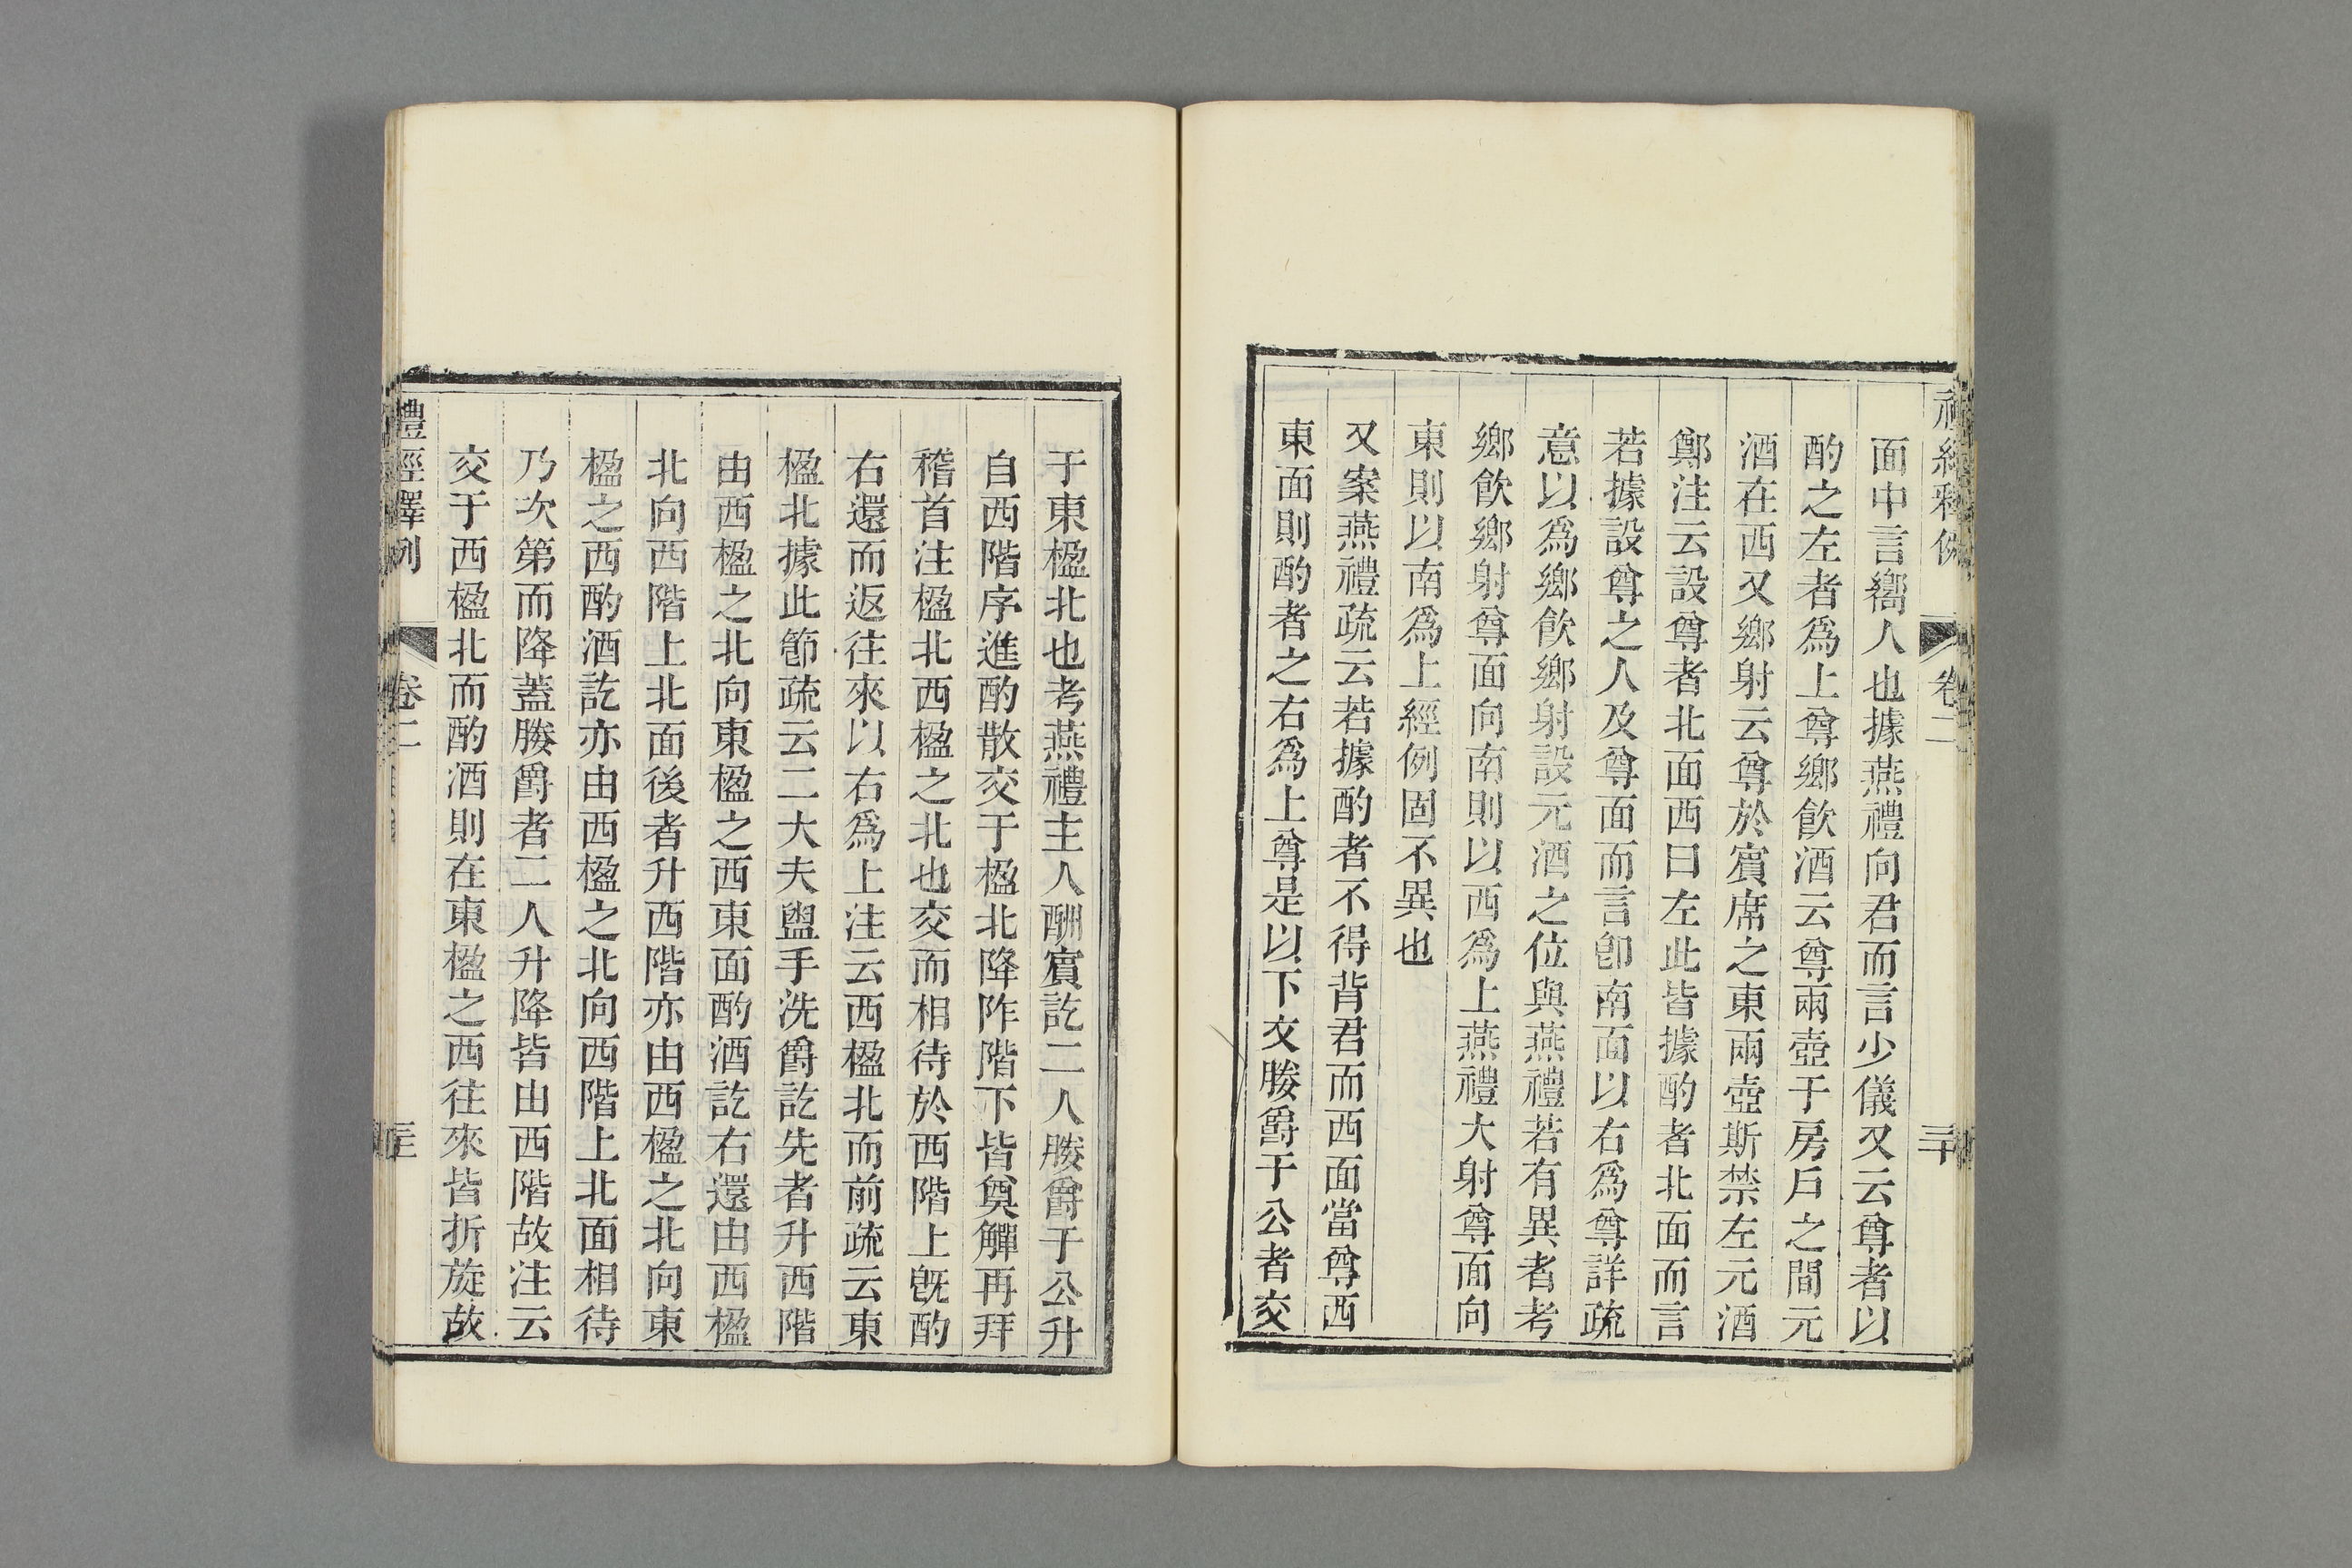 面中言嚮人也據燕禮向君而言少儀又云尊者以
酌之左者爲上尊鄉飲酒云尊兩壺于房戶之間元
酒在西又鄉射云尊於賓席之東兩壺斯禁左元酒
鄭注云設尊者北面西曰左此皆據酌者北面而言
若據設尊之人及尊面而言卽南面以右爲尊詳疏
意以爲鄉飲鄉射設元酒之位與燕禮若有異者考
鄉飲鄉射尊面向南則以西爲上燕禮大射尊面向
東則以南爲上經例固不異也
又案燕禮疏云若據酌者不得背君而西面當尊西
東面則酌者之右爲上尊是以下文媵爵于公者交
于東楹北也考燕禮主人酬賓訖二人媵爵于公升
自西階序進酌散交于楹北降阼階下皆奠觶再拜
稽首注楹北西楹之北也交而相待於西階上旣酌
右還而返往來以右爲上注云西楹北而前疏云東
楹北據此節疏云二大夫盥手洗爵訖先者升西階
由西楹之北向東楹之西東面酌酒訖右還由西楹
北向西階上北面後者升西階亦由西楹之北向東
楹之西酌酒訖亦由西楹之北向西階上北面相待
乃次第而降蓋媵爵者二人升降皆由西階故注云
交于西楹北而酌酒則在東楹之西往來皆折旋故
禮經釋例 卷二